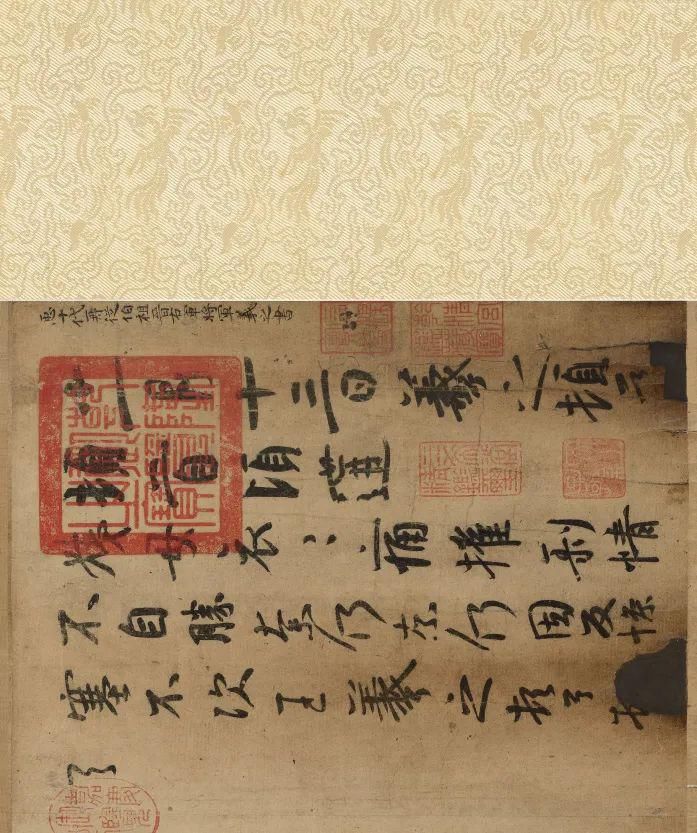 𢘑十代再從伯祖晉右軍將軍羲之書
十一月十三日羲之頓首
頓首頃遘
姨母哀哀痛摧剝情
不自勝奈何奈何因反慘
塞不次王羲之頓首頓
首